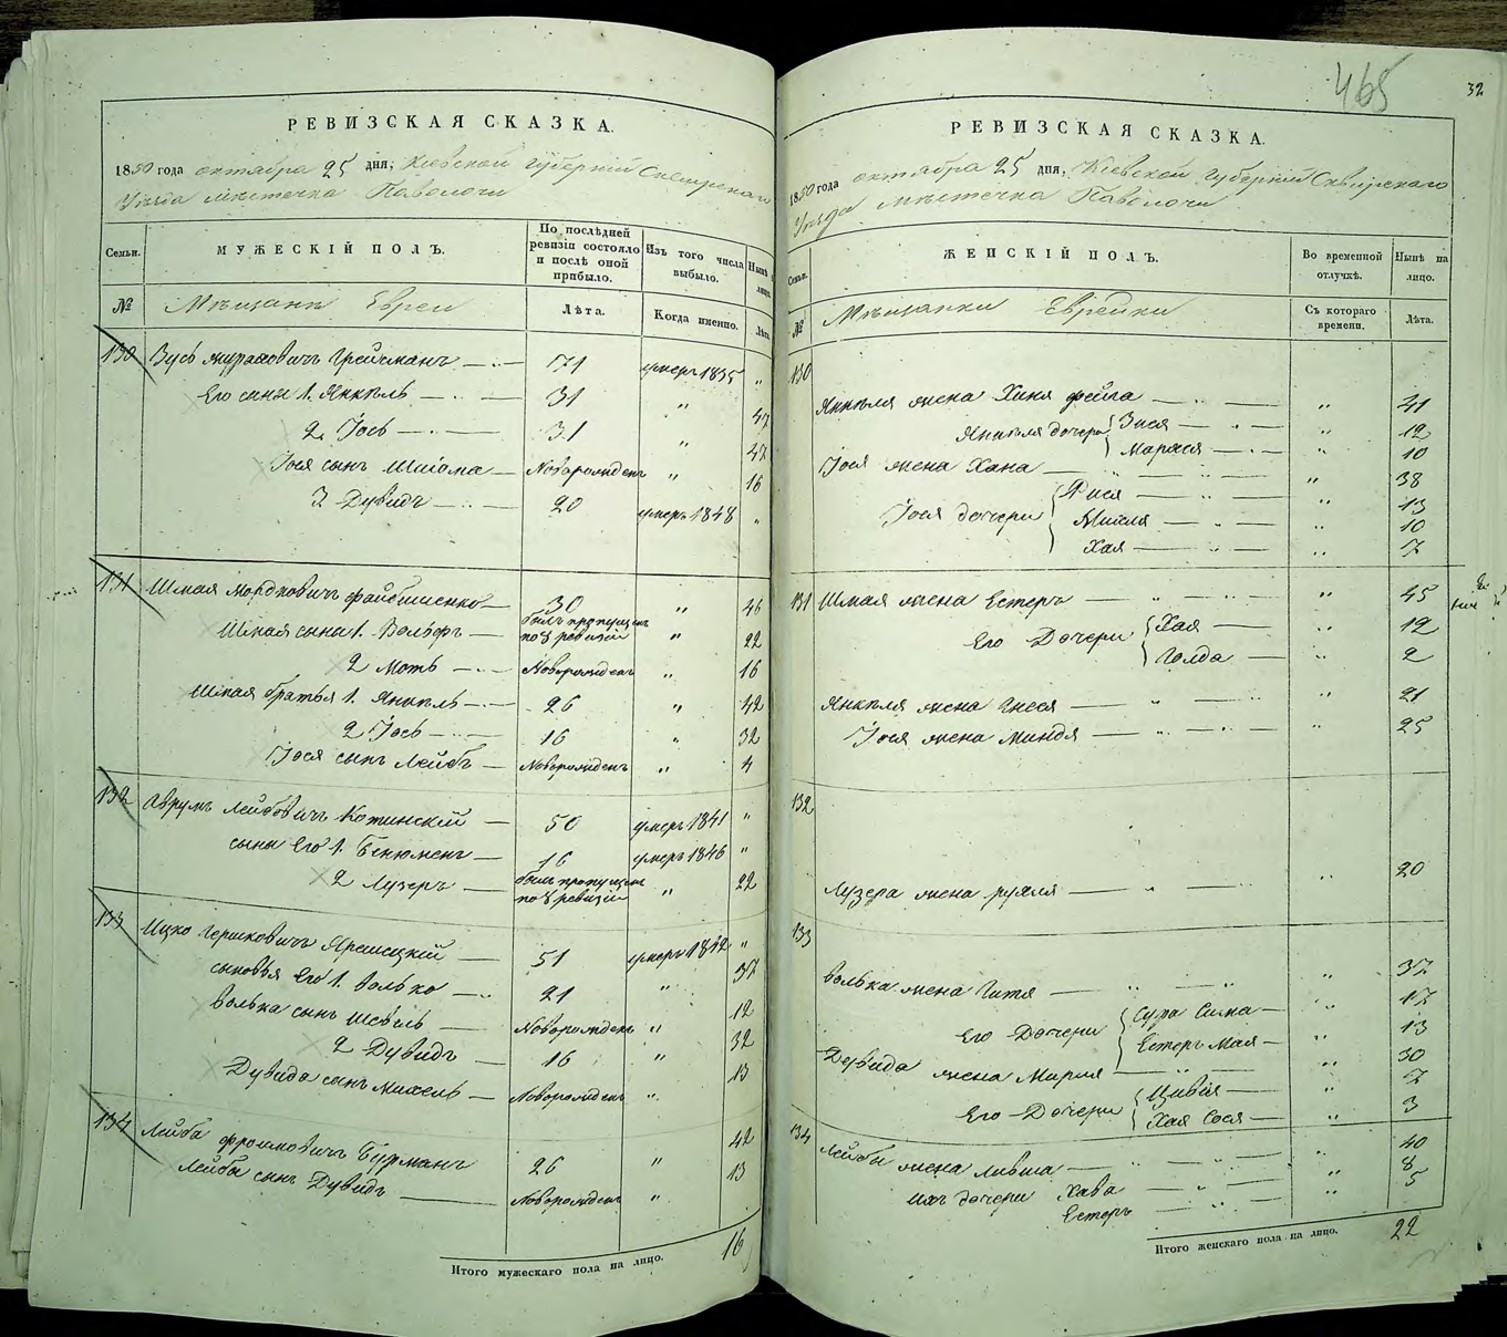 РЕВИЗСКАЯ СКАЗКА.
1850 года октября 25 дня, Кіевской Губерніи Сквирскаго
Уѣзда мѣстечка Паволочи
Семьи. МУЖЕСКІЙ ПОЛЪ. По послѣдней ревизіи состояло и послѣ оной прибыло. Изъ того числа выбыло. Нынѣ на лицо.
№ Мѣщанъ Евреи Лѣта. Когда именно. Лѣта
130 Зусь Грейсманъ 71 умеръ 1835 "
Его сыны 1. Янкель 31 " 47
2. Іось 31 " 47
Іося сынъ Шлiома Новорожденъ " 16
3. Дувидъ 20 умеръ 1848 "
131 Шмая Мордковичъ Файбишенко 30 " 46
Шмая сыны 1. Вольфъ былъ пропущенъ по 8 ревизіи " 22
2 Моть Новорожденъ " 16
Шмая братья 1. Янкель 26 " 42
2 Іось 16 " 32
Іося сынъ Лейбъ Новорожденъ " 4
132 Аврумъ Лейбовичъ Котинскій 50 умеръ 1841 "
сыны его 1. Бенюменъ 16 умеръ 1846 "
2 Лузеръ былъ пропущенъ по 8 ревизіи " 22
133 Ицко Гершковичъ Ярешецкій 51 умеръ 1842 "
сыновья его 1. Волько 21 " 37
Волька сынъ Шевель Новорожденъ " 12
2 Дувидъ 16 " 32
Дувида сынъ Михель Новорожденъ " 13
134 Лейба Фроимовичъ Бурманъ 26 " 42
Лейбы сынъ Дувидъ Новорожденъ " 13
Итого мужескаго пола на лицо. 16
465
32
РЕВИЗСКАЯ СКАЗКА.
1850 года октября 25 дня, Кіевской Губерніи Сквирскаго
Уѣзда мѣстечка Паволочи
Семьи. ЖЕНСКІЙ ПОЛЪ. Во временной отлучкѣ. Нынѣ на лицо.
№ Мѣщанки Еврейки Съ котораго времени. Лѣта.
130
Янкеля жена Хиня Фейга " 41
Янкеля дочери Зися " 12
Марьяся " 10
Іося жена Хана " 38
Іося дочери " 13
" 10
Хая " 7
131 Шмая жена Естеръ " 45
Его Дочери Хая " 12
Голда " 2
Янкеля жена Гнеся " 21
Іося жена Миндя " 25
132
Лузера жена Рухля " 20
133
Волька жена Гитя " 37
Его Дочери Сура Сима " 17
Естеръ Мая " 13
Дувида жена Марія " 30
Его Дочери Цивія " 7
Хая Сося " 3
134 Лейбы жена Ливша " 40
ихъ дочери Хава " 8
Естеръ " 5
Итого женскаго пола на лицо. 22